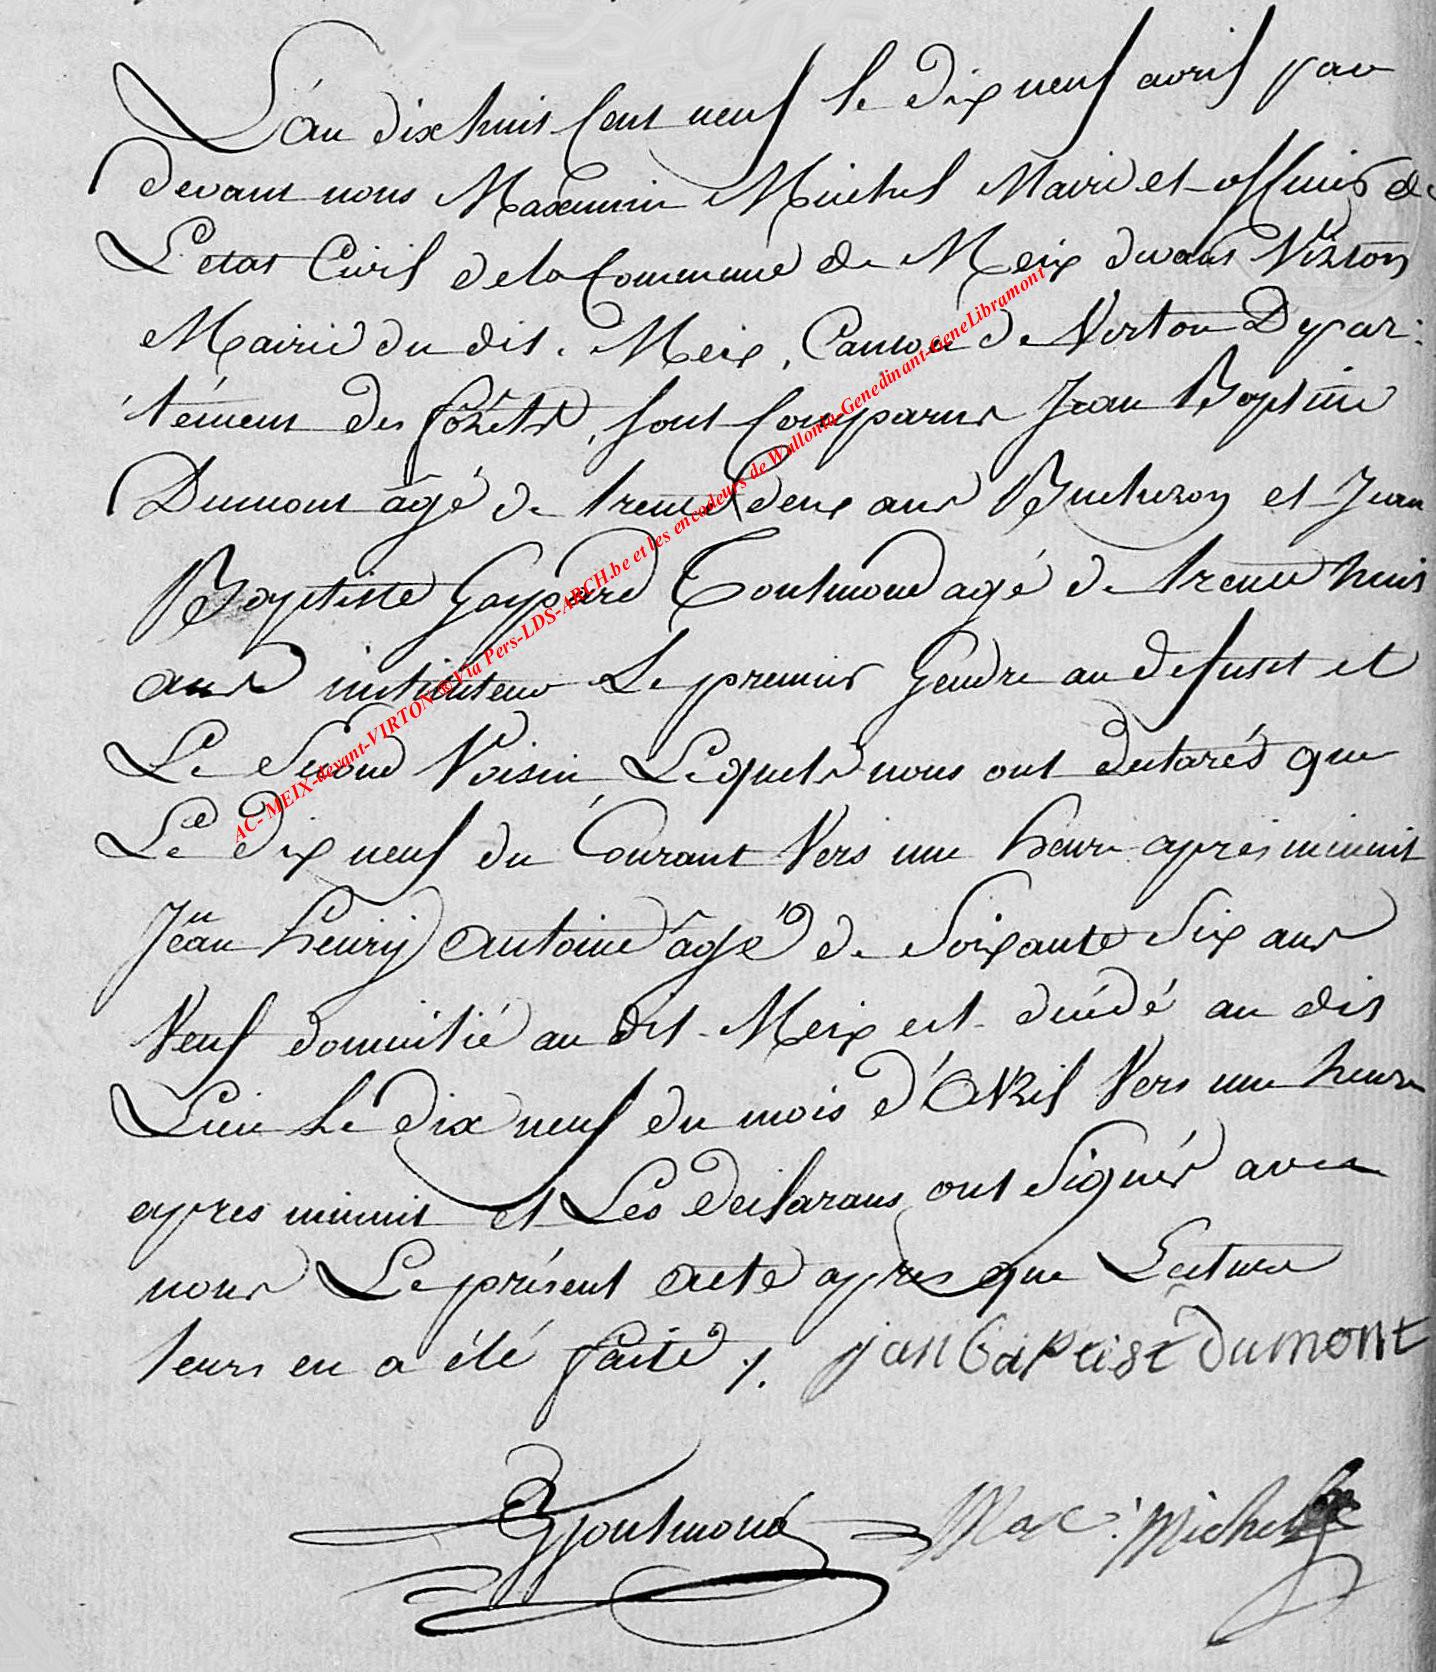 L'an dix huit Cent neuf le dix neuf avril par
devant nous Maximin Michel Maire et officier de
L'etat Civil de la Commune de Meix devant Virton
Mairie du dit Meix, Canton de Virton Depar-
tement des forêts, sont Comparus Jean Baptiste
Dumont âgé de trente deux ans Bucheron et Jean
Baptiste Gaspard Toutmond agé de trente huit
ans instituteur Le premier Gendre au defunt et
Le Second Voisin, Lesquels nous ont declarés que
Le dix neuf du Courant Vers une heure apres minuit
Jean henry Antoine âgé de Soixante Six ans
Veuf domicilié au dit Meix est décédé au dit
Lieu Le dix neuf du mois d'AVRil Vers une heure
apres minuit et Les declarans ont Signés avec
nous Le présent acte apres que Lecture
leurs en a été faite ./. jan baptist dumont
Toutmond Max: Michel
AC- MEIX-devant-VIRTON @ Via Pers-LDS-ARCH.be et les encodeurs de Wallonia-Genedinant-GeneLibramont